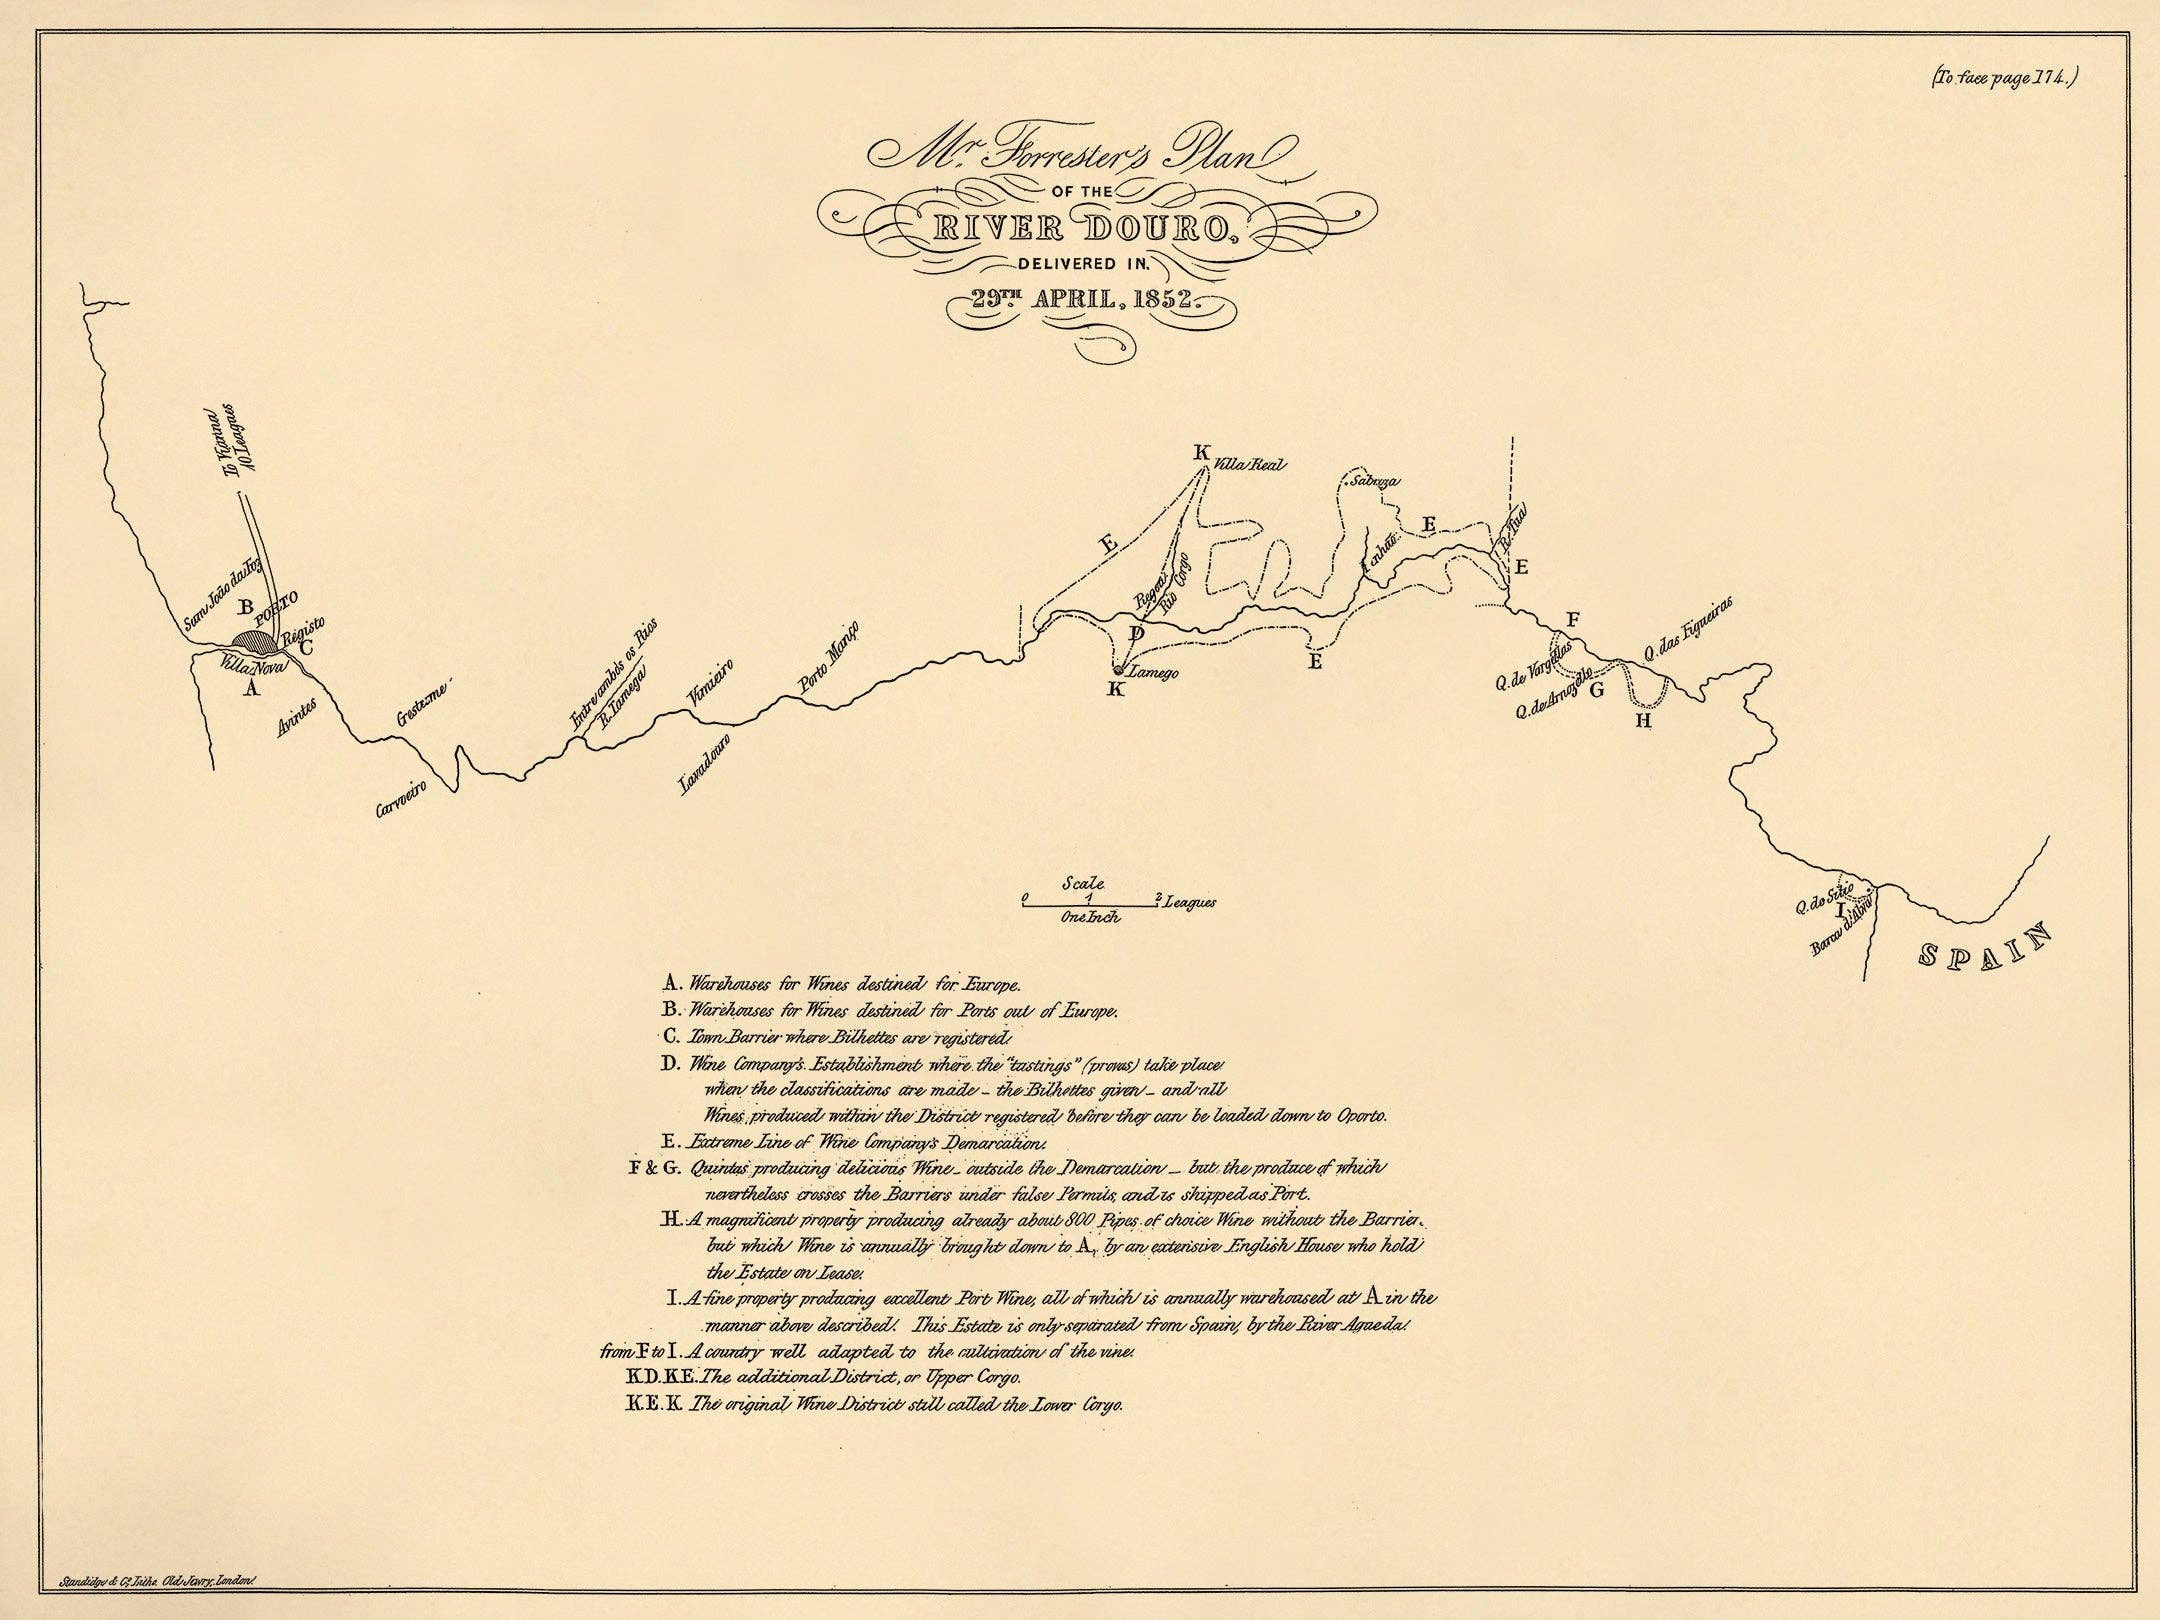 (To face page 174.)
Mr. Forrester's Plan
OF THE
RIVER DOURO,
DELIVERED IN.
29TH APRIL, 1852.
To Vianna
10 Leagues
San João da Foz
B
PORTO
Registo
C
Villa Nova
A
Avintes
Carvoeiro
Entre ambos os Rios
R. Tamega
Vimieiro
Lavadouro
Porto Manço
K
Villa Real
E
Regoa
Rio Corgo
D
K
Lamego
E
Sabroza
E
R. Tua
E
F
Q. de Vargellas
Q. de Arnozello
G
H
Q. das Figueiras
Q. do Sitio
I
Barca d'Alva
SPAIN
Scale
0 1 2 Leagues
One Inch
A. Warehouses for Wines destined for Europe.
B. Warehouses for Wines destined for Ports out of Europe.
C. Town Barrier where Bilhettes are registered.
D. Wine Company's Establishment where the "tastings" (provas) take place
when the classifications are made – the Bilhettes given – and all
Wines, produced within the District registered before they can be loaded down to Oporto.
E. Extreme Line of Wine Company's Demarcation.
F & G. Quintas producing delicious Wine – outside the Demarcation – but the produce of which
nevertheless crosses the Barriers under false Permits, and is shipped as Port.
H. A magnificent property producing already about 800 Pipes of choice Wine without the Barrier,
but which Wine is annually brought down to A, by an extensive English House who hold
the Estate on Lease.
I. A fine property producing excellent Port Wine, all of which is annually warehoused at A in the
manner above described. This Estate is only separated from Spain, by the River Agueda.
from F to I. A country well adapted to the cultivation of the vine.
K.D.K.E. The additional District, or Upper Corgo.
K.E.K. The original Wine District still called the Lower Corgo.
Standidge & Co. Litho. Old Jewry, London.